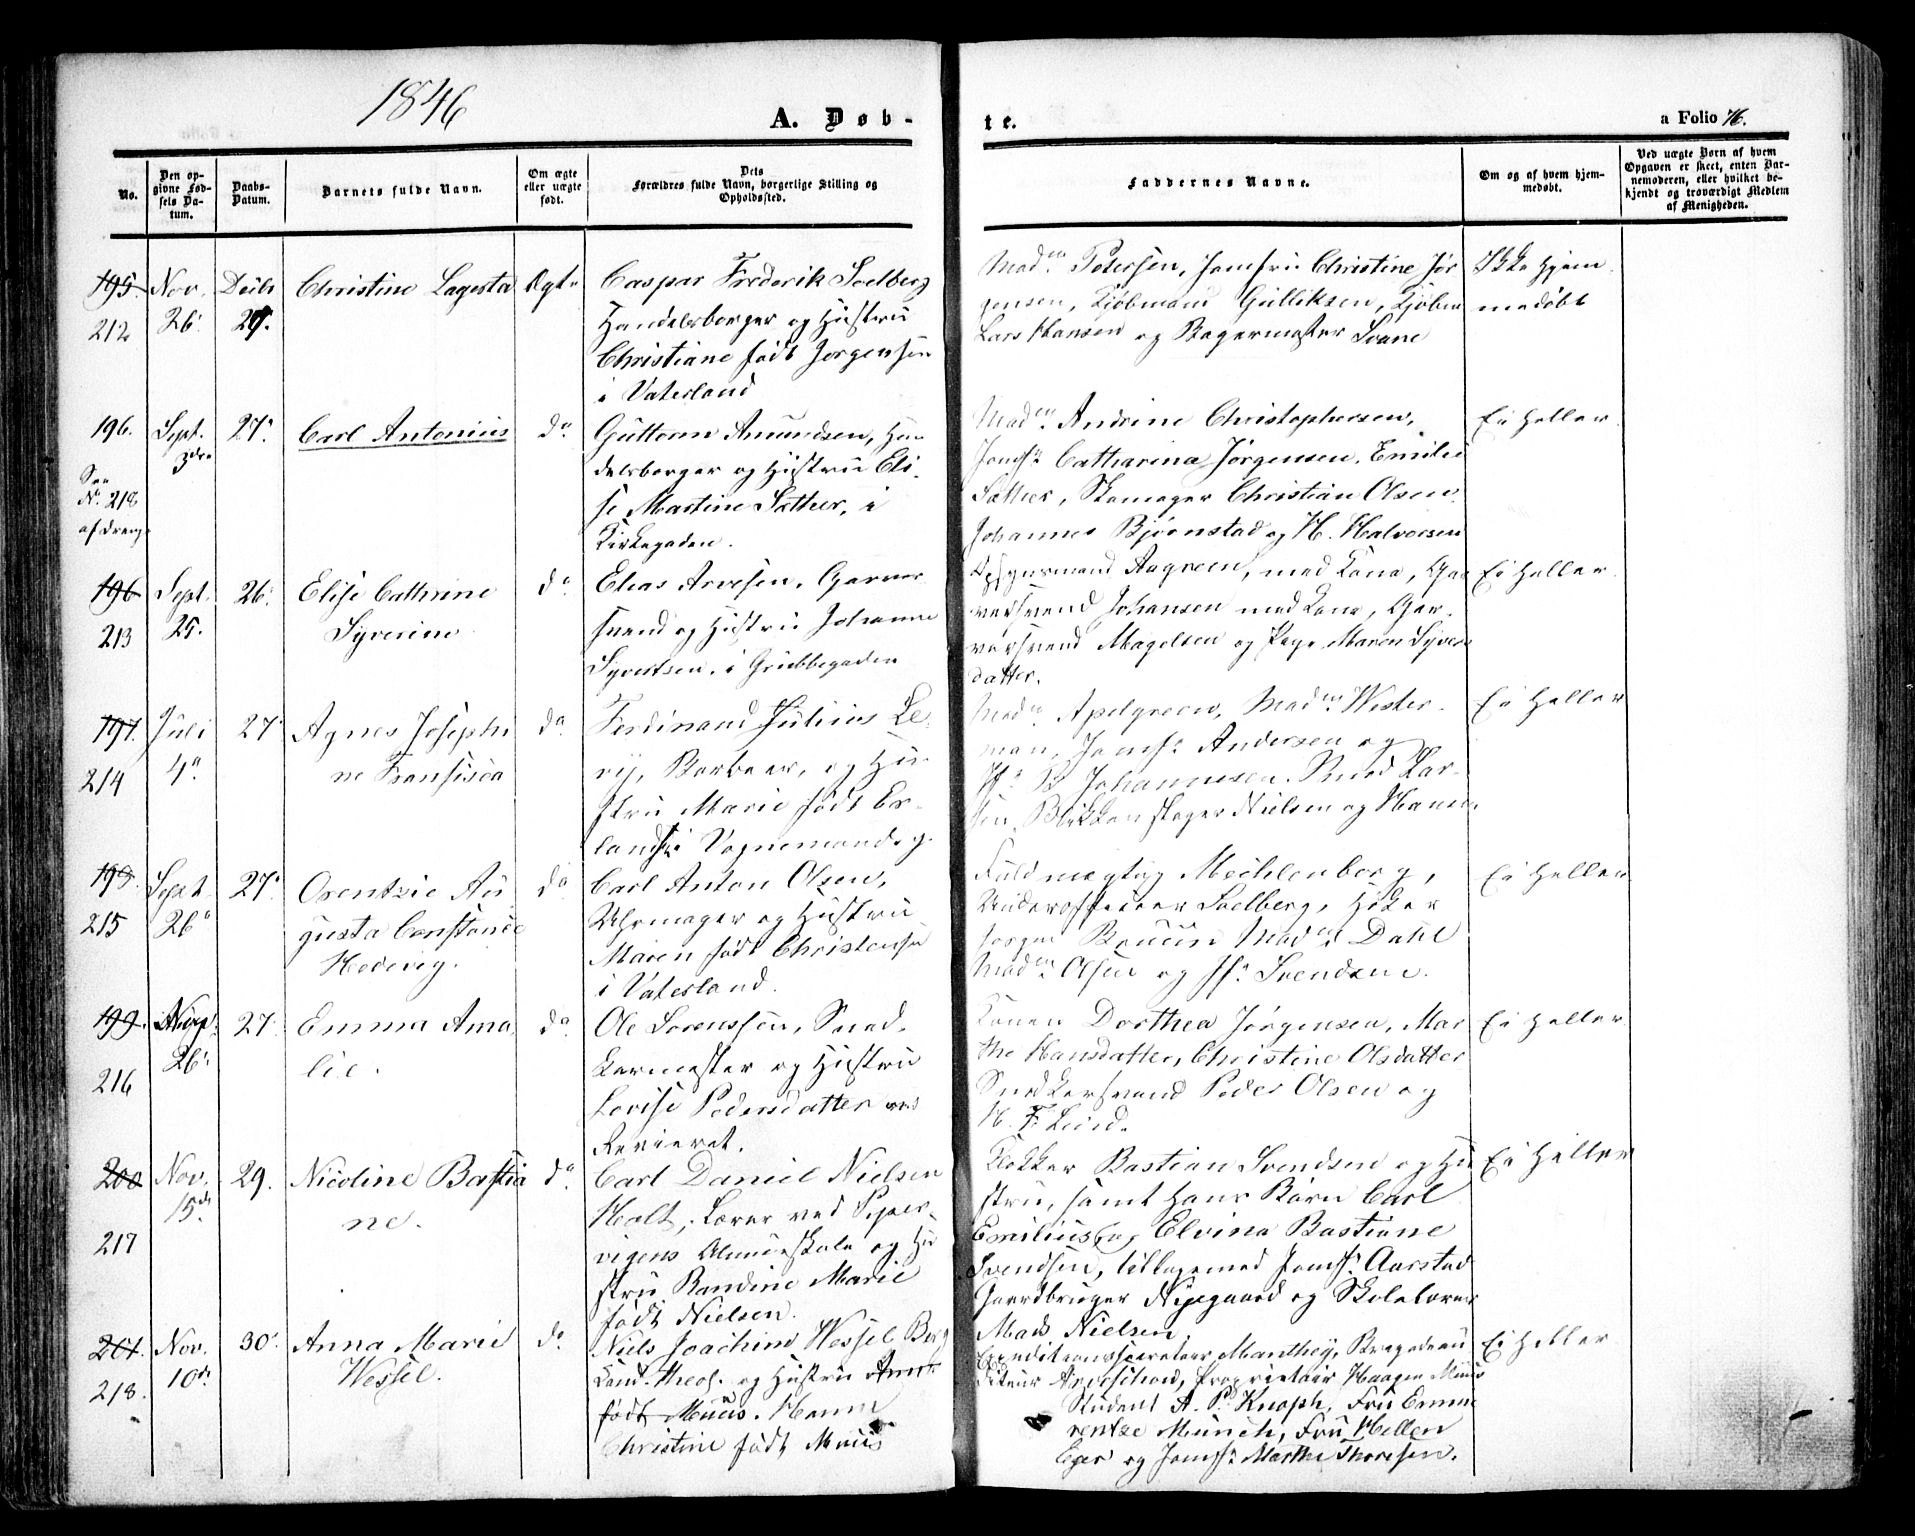 1846
A. Døb-
te.
a Folio 76.
No.
Den op-
givne Fød-
sels Da-
tum.
Daabs-
Datum.
Barnets fulde Navn.
Om ægte
eller uægte
født.
Dets
Forældres fulde Navn, borgerlige Stilling og
Opholdssted.
Faddernes Navne.
Om og af hvem hjem-
medøbt.
Ved uægte Børn af hvem
Opgaven er skeet, enten Bar-
nemoderen, eller hvilket be-
kjendt og troværdigt Medlem
af Menigheden.
195.
212
Nov.
26.
Christine Lagesta
Ægte
Caspar Frederik Soelberg
Handelsborger og Hustru
Christiane født Jørgensen
i Vaterland
Mad.m Petersen, Jomfru Christine Jør
gensen, Kjøbmand Gulliksen, Kjøbm
Lars Hansen og Bagermester Svane
Ikke Hjem
medøbt
196.
See
N. 218
af Dreng
Sept.
3die
27.
Carl Antonius
do
Guttorm Amundsen, Han
delsborger og Hustru Eli-
se Martine Sæther, i
Kirkegaden.
Mad.m Andrine Christophersen,
Jomf. Catharina Jørgensen, Emilie
Sæther, Skomager Christian Olsen
Johannes Bjørnstad og H. Halvorsen
Ei Heller
196
213
Sept.
25.
26.
Elise Cathrine
Syverine
do
Elias Arvesen, Garver
svend og Hustru Johanne
Syvertsen, i Grubbegaden
Aagreen, med Kone, Gar
versvend Johansen med Kone, Gar-
versvend Magelsen og Pige Maren Syvers
datter.
Ei Heller
197.
214
Juli
4.
27
Agnes Josephi
ne Fransisca
do
Ferdinand Julius Le-
vy, Barbeer, og Hu-
stru Marie født Er-
landsen i Vognmandsg.
Mad.m Apelgreen, Mad.m Wester-
man, Jomf. Andersen og
Jf. B Johannesen. Smed Lar-
sen, Blikkenslager Nielsen og Hansen
Ei Heller
198.
215
Sept.
26
27.
Orentzie Au
gusta Constance
Hedevig.
do
Carl Anton Olsen,
Uhrmager og Hustru
Maren født Christensen
i Vaterland.
Fuldmægtig Mechlenborg,
Underofficeer Soelberg, Høker
Bruun Mad.m Dahl
Mad.m Olsen og Jf. Svendsen.
Ei Heller
199.
216
26.
27.
Emma Ama
lie.
do
Ole Sørenssen, Sned-
kermester og Hustru
Lovise Pedersdatter ved
Revieret.
Konen Dorthea Jørgensen, Mar
the Hansdatter, Christine Olsdatter
Snedkersvend Peder Olsen og
H. F. Lund.
Ei Heller
200
217
Nov.
15de
29.
Nicoline Bastia
ne.
do
Carl Daniel Nielsen
Holt, Lærer ved Piper-
vigens Almueskole og Hu
stru Bendine Marie
født Nielsen.
Klokker Bastian Svendsen og Hu
stru, samt hans Børn Carl
Emilius og Elvina Bastiane
Svendsen, tilligemed Jomf. Aarstad
Gaardbruger Nygaard og Skolelærer
Mads Nielsen.
Ei Heller
201.
218.
Nov.
10de
30.
Anna Marie
Wessel.
do
Niels Joachim Wessel Berg
Cand. Theol. og Hustru
født Muus. Hanne
Christine født Muus
Expeditionssecretair Manthey, Brigadeau
diteur, Proprietair Haagen Muus
Student A. P. Knoph, Fru Emme
rentze Münch, Fru Hellen
Eger og Jomf. Marthe Thoresen.
Ei Heller